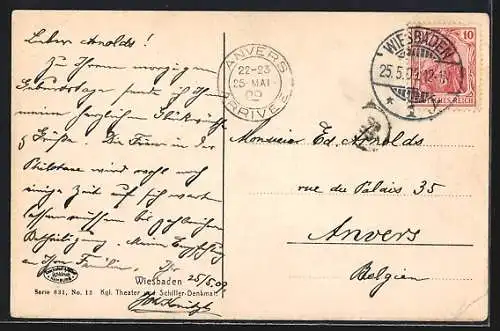 Lieber Arnolds!
Zu Ihrem morgigen
Geburtstage sende ich Ihnen
meine herzlichen Glückwünsche
& Grüße. Die Firma in der
wird wohl noch
einige Zeit auf sich warten
lassen müssen bis
Betheiligung. Meine Empfehlung
an Ihre Familie, Ihr
25/5.09
ANVERS
22-23
25 MAI
09
ARRIVEE
WIESBADEN
25.5.09.12-1
* 1
10
DEUTSCHES REICH
Monsieur Ed. Arnolds
rue du Palais 35
Anvers
Belgien
Wiesbaden
Serie 831, No. 13 Kgl. Theater mit Schiller-Denkmal